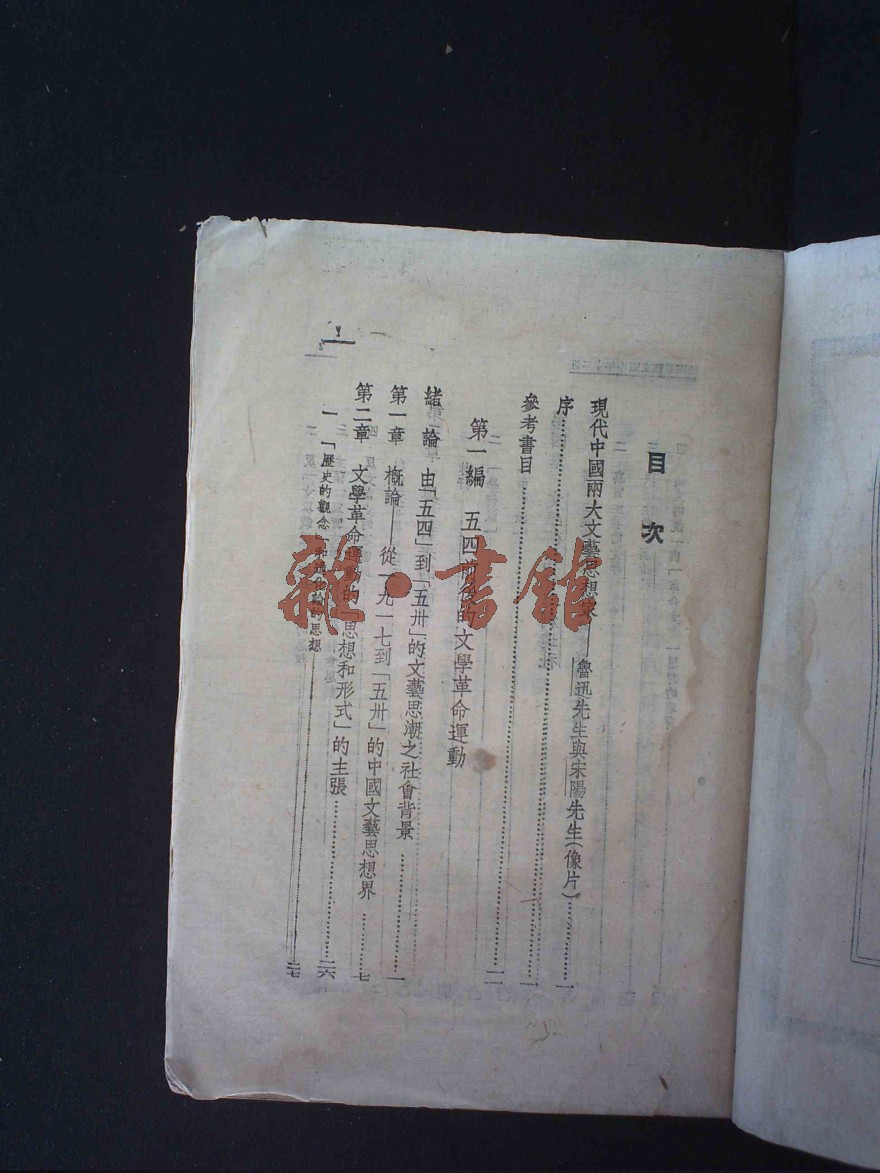 目次
現代中國兩大文藝思想家——魯迅先生與宋陽先生(像片)
序……一
參考書目……一
第一編　五四前後的文學革命運動……一
緒論　由「五四」到「五卅」的文藝思潮之社會背景……一
第一章　概論——從一九一七到「五卅」的中國文藝思想界……七
第二章　文學革命運動的「思想和形式」的主張……二六
一　「歷史的觀念」和進化論的思想……二七
雜·書館